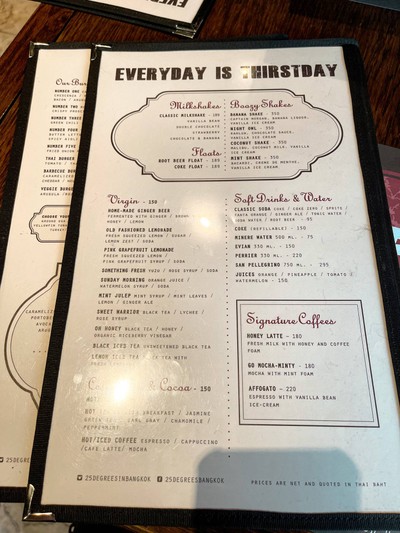 EVERYDAY IS THIRSTDAY
Milkshakes
CLASSIC MILKSHAKE - 180
VANILLA BEAN
DOUBLE CHOCOLATE
STRAWBERRY
CHOCOLATE & BANANA
Floats
ROOT BEER FLOAT - 180
COKE FLOAT - 180
Boozy Shakes
BANANA SHAKE - 350
VANILLA ICE CREAM
NIGHT OWL - 350
VANILLA ICE CREAM
COCONUT SHAKE - 350
ICE CREAM
MINT SHAKE - 350
VANILLA ICE CREAM
Virgin - 150
HOME-MADE GINGER BEER
FERMENTED WITH GINGER / BROWN
HONEY / LEMON
OLD FASHIONED LEMONADE
FRESH SQUEEZED LEMON /
LEMON ZEST / SODA
PINK GRAPEFRUIT LEMONADE
FRESH SQUEEZED LEMON /
PINK GRAPEFRUIT SYRUP / SODA
SOMETHING FRESH YUZU / ROSE SYRUP / SODA
SUNDAY MORNING ORANGE JUICE /
WATERMELON SYRUP / SODA
MINT JULEP MINT SYRUP / MINT LEAVES /
LEMON / GINGER ALE
SWEET WARRIOR BLACK TEA / LYCHEE /
ROSE SYRUP
OH HONEY BLACK TEA / HONEY /
ORGANIC RICEBERRY VINEGAR
BLACK ICED TEA UNSWEETENED BLACK TEA
LEMON ICED TEA BLACK TEA WITH
& Cocoa - 150
HOT
BREAKFAST / JASMINE
EARL GRAY / CHAMOMILE /
PEPPERMINT
HOT/ICED COFFEE ESPRESSO / CAPPUCCINO
/CAFE LATTE/ MOCHA
Soft Drinks & Water
CLASSIC SODA COKE / COKE ZERO / SPRITE /
FANTA ORANGE / GINGER ALE / TONIC WATER /
SODA WATER / ROOT BEER - 95
COKE (REFILLABLE) - 150
MINERE WATER 500 ML. - 75
EVIAN 330 ML. - 150
PERRIER 330 ML. - 220
SAN PELLEGRINO 750 ML. - 295
JUICES ORANGE / PINEAPPLE / TOMATO /
WATERMELON - 150
Signature Coffees
HONEY LATTE - 180
FRESH MILK WITH HONEY AND COFFEE
FOAM
GO MOCHA-MINTY - 180
MOCHA WITH MINT FOAM
AFFOGATO - 220
ESPRESSO WITH VANILLA BEAN
ICE-CREAM
25DEGREESINBANGKOK
25DEGREESBANGKOK
PRICES ARE NET AND QUOTED IN THAI BAHT
Our Bur
NUMBER ONE
NUMBER TWO
NUMBER THREE
NUMBER FOUR
NUMBER FIVE
THAI BURGER
BARBECUE BUR
VEGGIE BURGER
CHOOSE YOUR
CARAMELIZ
PORTOB
AVOCA
25DEGRE